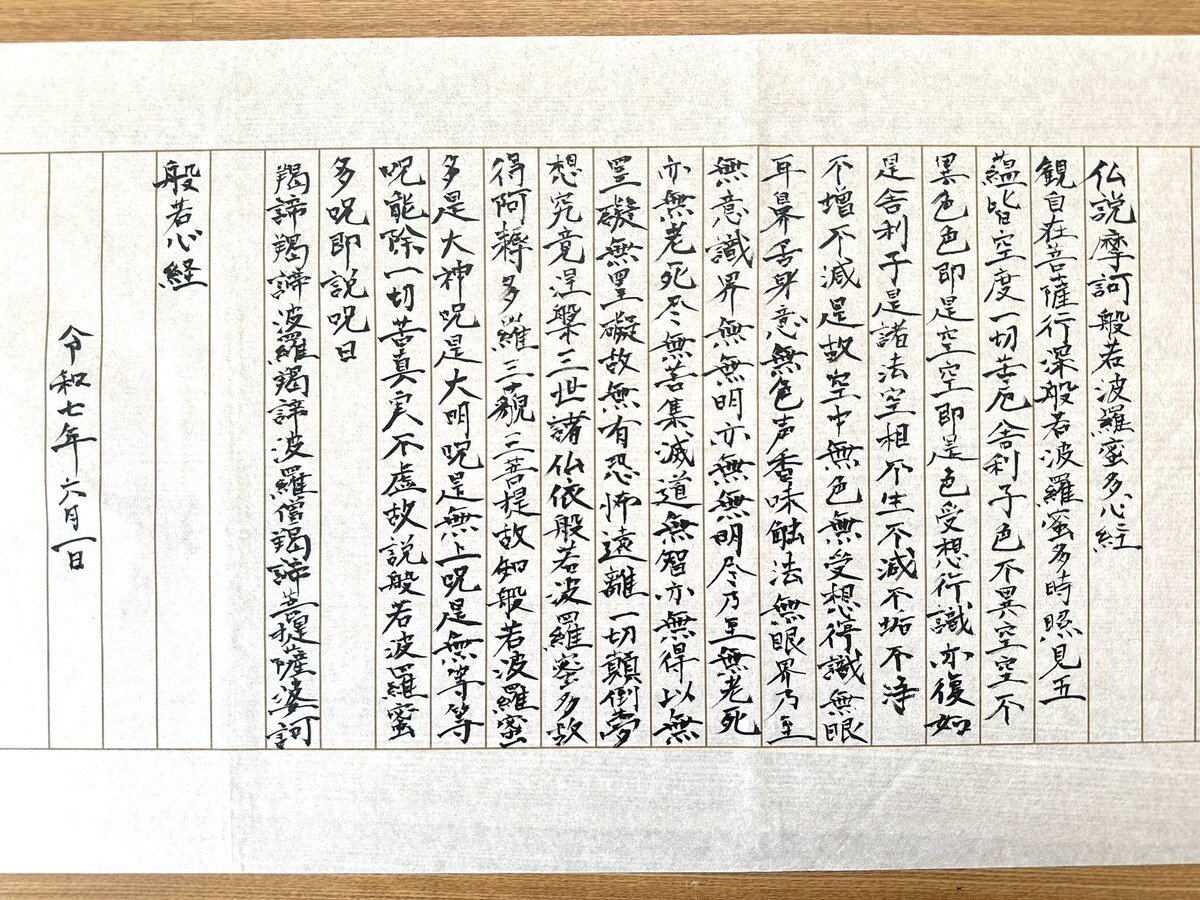 仏説摩訶般若波羅蜜多心経
観自在菩薩行深般若波羅蜜多時照見五
蘊皆空度一切苦厄舎利子色不異空空不
異色色即是空空即是色受想行識亦復如
是舎利子是諸法空相不生不滅不垢不浄
不増不減是故空中無色無受想行識無眼
耳鼻舌身意無色声香味触法無眼界乃至
無意識界無無明亦無無明尽乃至無老死
亦無老死尽無苦集滅道無智亦無得以無
罣礙無罣礙故無有恐怖遠離一切顛倒夢
想究竟涅槃三世諸仏依般若波羅蜜多故
得阿耨多羅三藐三菩提故知般若波羅蜜
多是大神呪是大明呪是無上呪是無等等
呪能除一切苦真実不虚故説般若波羅蜜
多呪即説呪曰
羯諦羯諦波羅羯諦波羅僧羯諦菩提薩婆訶
般若心経
令和七年六月一日